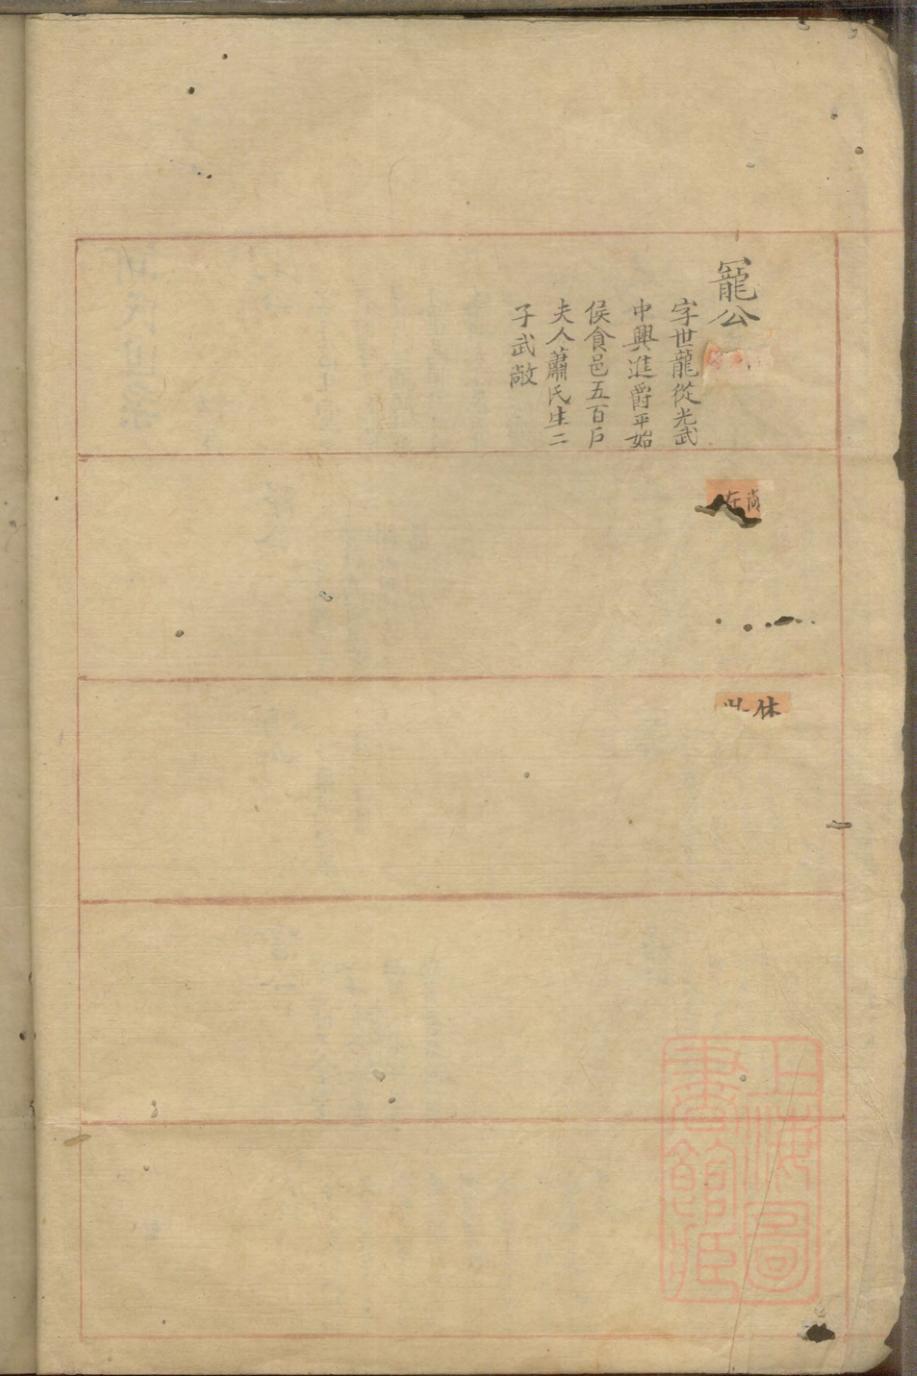 寵公
字世龍從光武
中興進爵平始
侯食邑五百戶
夫人蕭氏生二
子武敞
休
上海圖
書館藏